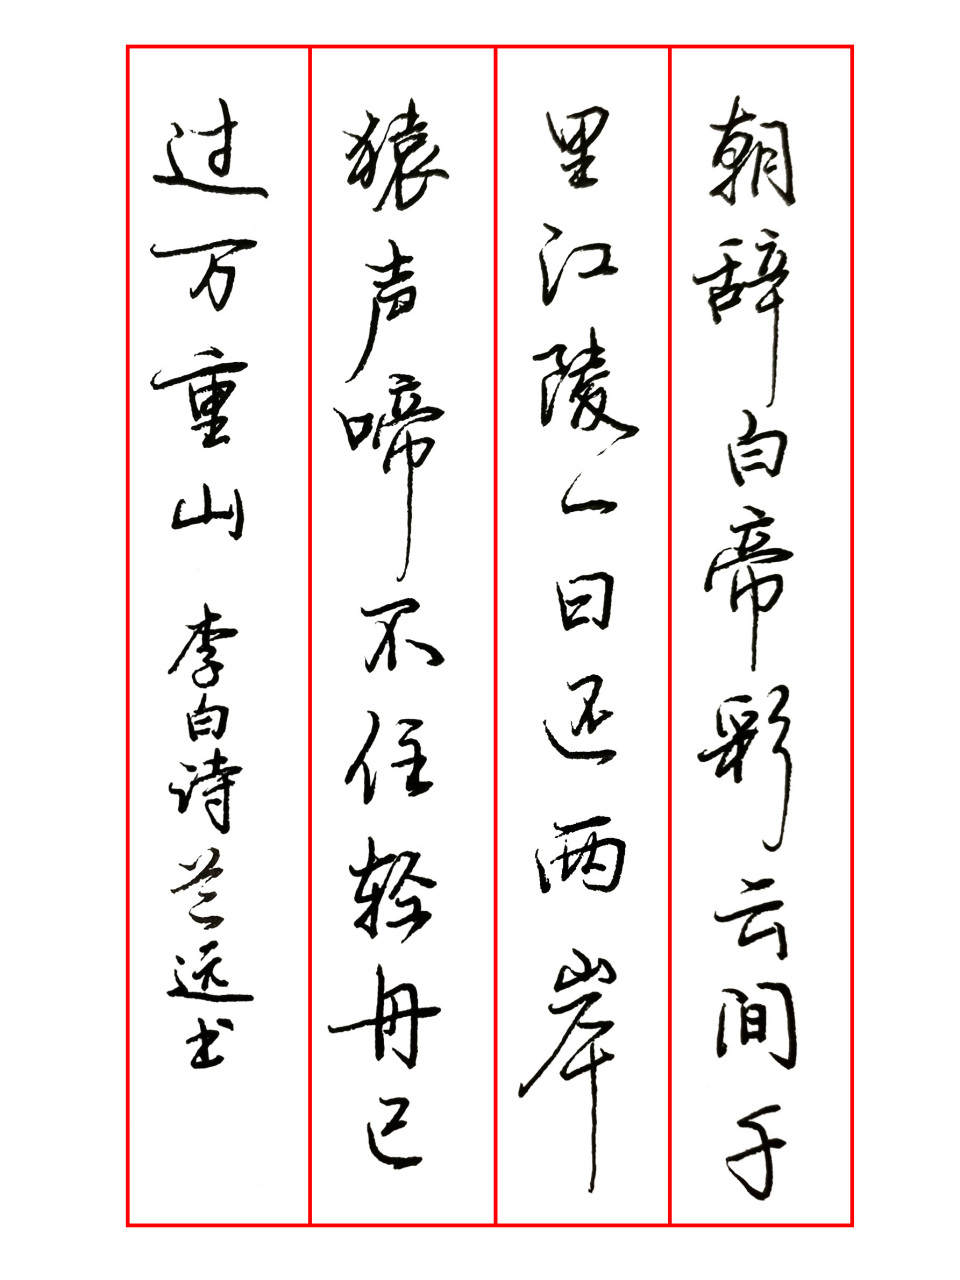 朝辞白帝彩云间千
里江陵一日还两岸
猿声啼不住轻舟已
过万重山 李白诗兰远书